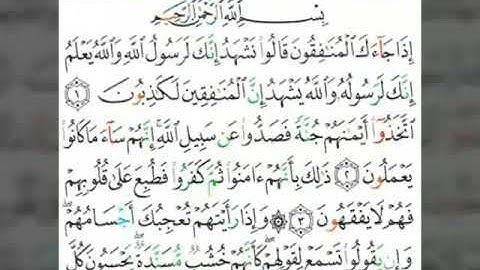 بِسْمِ اللَّهِ الرَّحْمَٰنِ الرَّحِيمِ
إِذَا جَاءَكَ الْمُنَافِقُونَ قَالُوا نَشْهَدُ إِنَّكَ لَرَسُولُ اللَّهِ وَاللَّهُ يَعْلَمُ
إِنَّكَ لَرَسُولُهُ وَاللَّهُ يَشْهَدُ إِنَّ الْمُنَافِقِينَ لَكَاذِبُونَ ١
اتَّخَذُوا أَيْمَانَهُمْ جُنَّةً فَصَدُّوا عَن سَبِيلِ اللَّهِ إِنَّهُمْ سَاءَ مَا كَانُوا
يَعْمَلُونَ ٢ ذَٰلِكَ بِأَنَّهُمْ ءَامَنُوا ثُمَّ كَفَرُوا فَطُبِعَ عَلَىٰ قُلُوبِهِمْ
فَهُمْ لَا يَفْقَهُونَ ٣ ۞ وَإِذَا رَأَيْتَهُمْ تُعْجِبُكَ أَجْسَامُهُمْ
وَإِن يَقُولُوا تَسْمَعْ لِقَوْلِهِمْ كَأَنَّهُمْ خُشُبٌ مُّسَنَّدَةٌ يَحْسَبُونَ كُلَّ